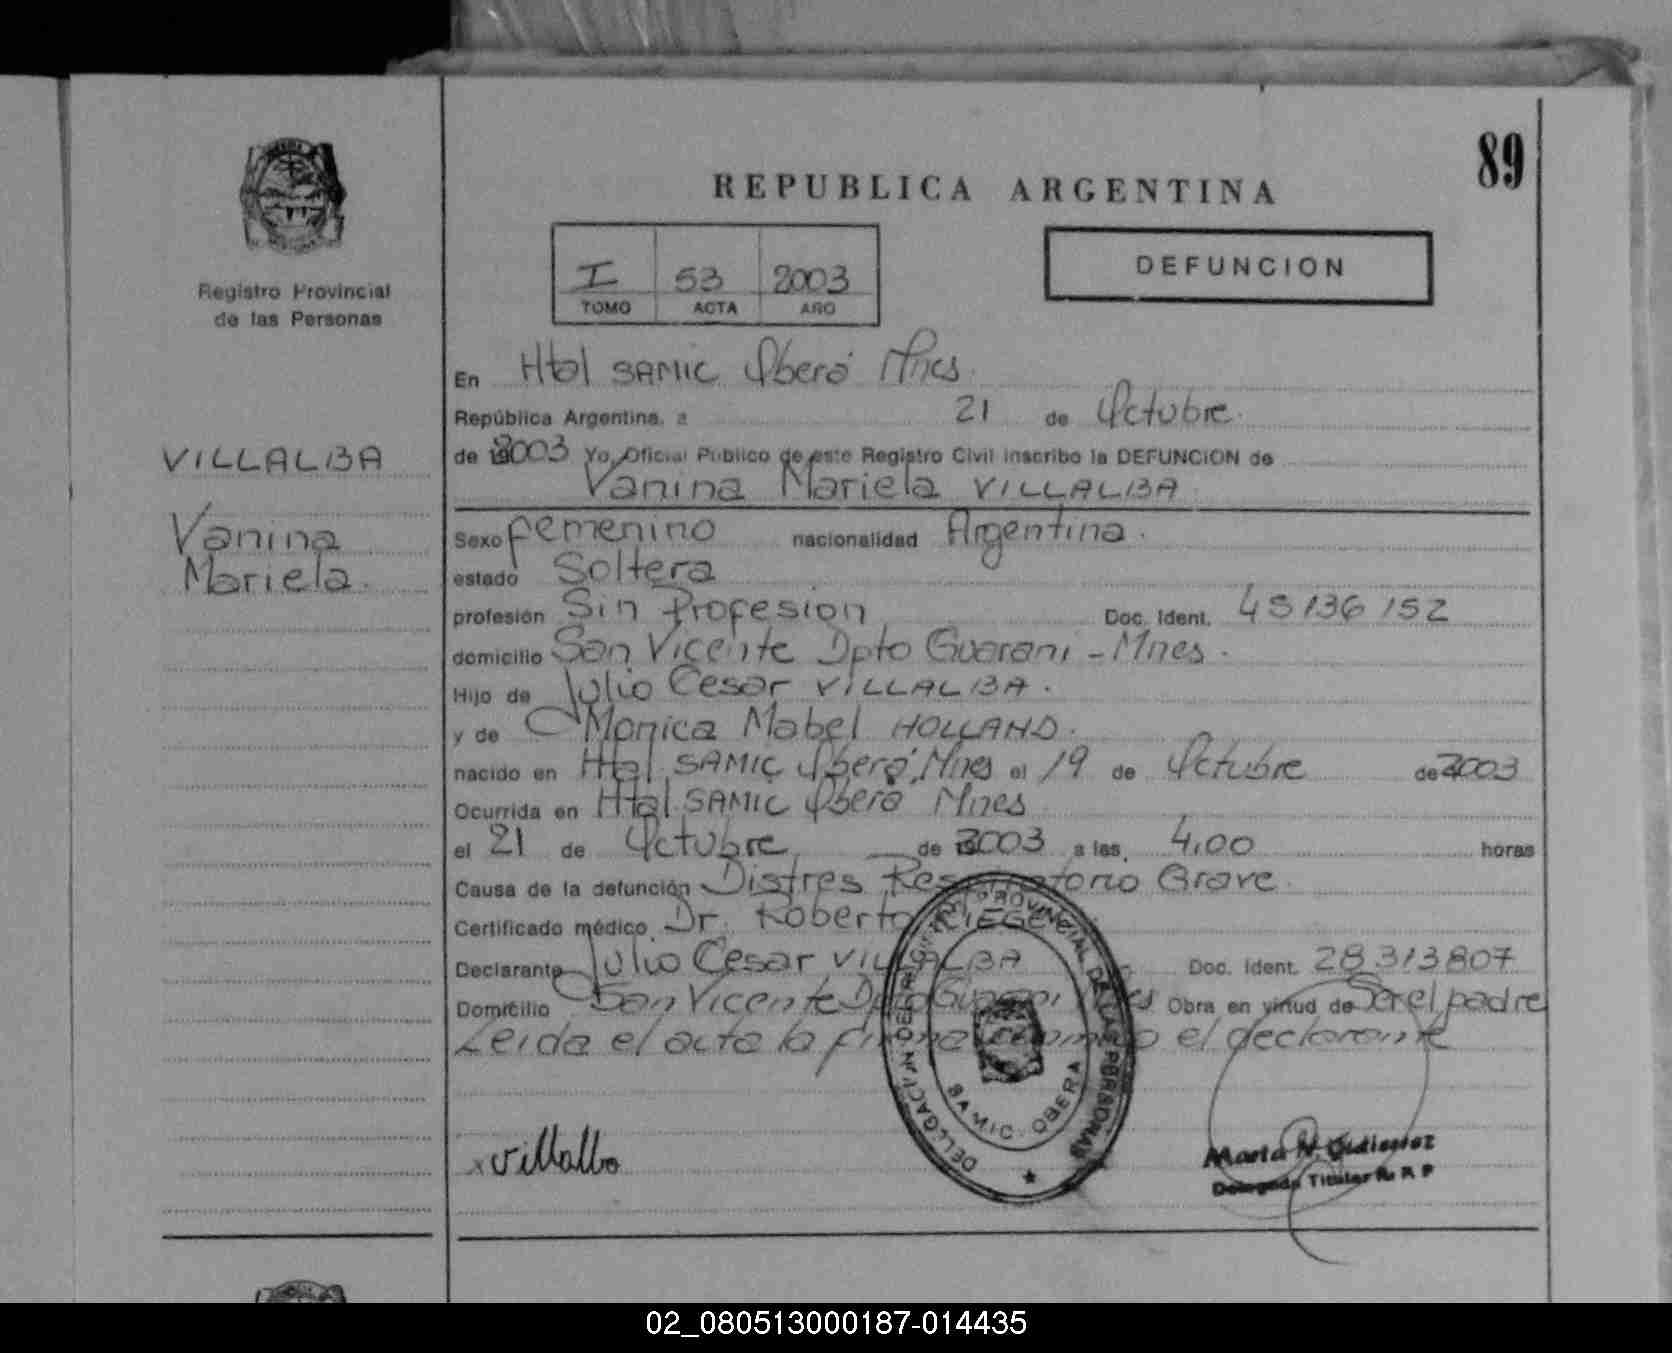 89
REPUBLICA ARGENTINA
I 53 2003
TOMO ACTA AÑO
DEFUNCION
Registro Provincial
de las Personas
VILLALBA
Vanina
Mariela.
En Htal SAMIC Oberá Mnes.
República Argentina, a 21 de Octubre.
de 2003 Yo, Oficial Público de este Registro Civil inscribo la DEFUNCION de
Vanina Mariela VILLALBA.
Sexo femenino nacionalidad Argentina.
estado Soltera
profesión Sin Profesion Doc. Ident. 45136152
domicilio San Vicente Dpto Guarani - Mnes.
Hijo de Julio Cesar VILLALBA.
y de Monica Mabel HOLLAND.
nacido en Htal SAMIC Oberá, Mnes el 19 de Octubre de 2003
Ocurrida en Htal SAMIC Oberá Mnes
el 21 de Octubre de 2003 a las 4,00 horas
Causa de la defunción Distres Respiratorio Grave.
Certificado médico Dr. Roberto
Declarante Julio Cesar VILLALBA Doc. Ident. 28313807
Domicilio San Vicente Dpto Guarani Mnes Obra en virtud de Ser el padre
Leida el acta la firma conmigo el declarante
DELEGACION DEL REGISTRO PROVINCIAL DE LAS PERSONAS
SAMIC - OBERA
x Villalba
Marta N. Gutierrez
Delegada Titular R. P. P.
02_080513000187-014435